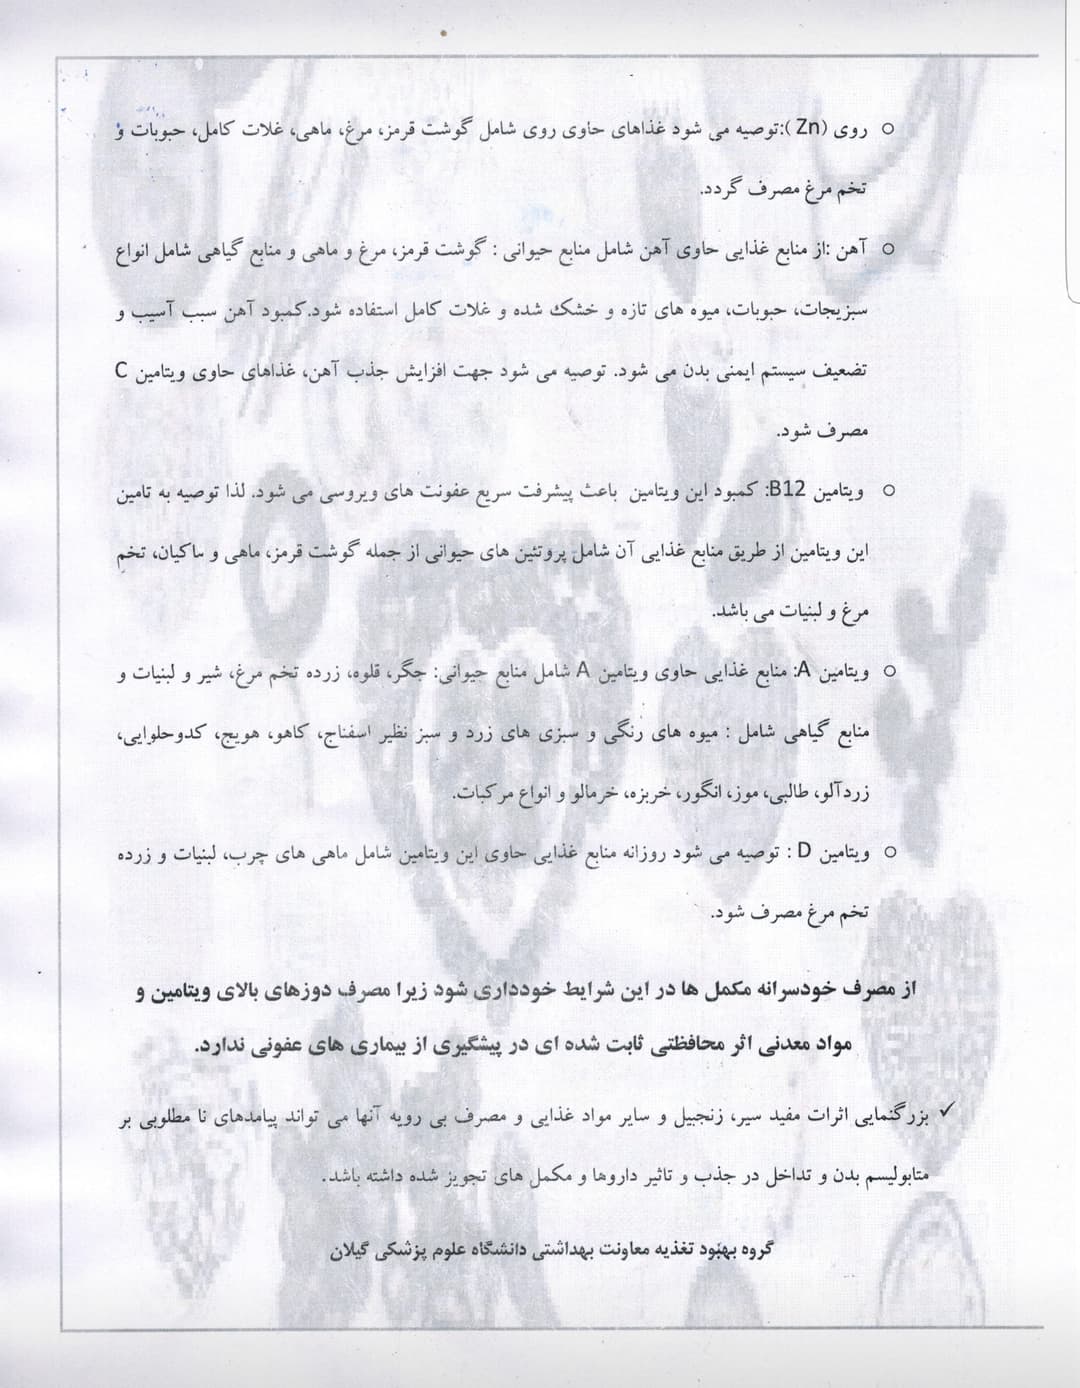 ○ روی (Zn ):توصیه می شود غذاهای حاوی روی شامل گوشت قرمز، مرغ، ماهی، غلات کامل، حبوبات و
تخم مرغ مصرف گردد.
○ آهن :از منابع غذایی حاوی آهن شامل منابع حیوانی : گوشت قرمز، مرغ و ماهی و منابع گیاهی شامل انواع
سبزیجات، حبوبات، میوه های تازه و خشک شده و غلات کامل استفاده شود.کمبود آهن سبب آسیب و
تضعیف سیستم ایمنی بدن می شود. توصیه می شود جهت افزایش جذب آهن، غذاهای حاوی ویتامین C
مصرف شود.
○ ویتامین B12: کمبود این ویتامین باعث پیشرفت سریع عفونت های ویروسی می شود. لذا توصیه به تامین
این ویتامین از طریق منابع غذایی آن شامل پروتئین های حیوانی از جمله گوشت قرمز، ماهی و ماکیان، تخم
مرغ و لبنیات می باشد.
○ ویتامین A: منابع غذایی حاوی ویتامین A شامل منابع حیوانی: جگر، قلوه، زرده تخم مرغ، شیر و لبنیات و
منابع گیاهی شامل : میوه های رنگی و سبزی های زرد و سبز نظیر اسفناج، کاهو، هویج، کدوحلوایی،
زردآلو، طالبی، موز، انگور، خربزه، خرمالو و انواع مرکبات.
○ ویتامین D : توصیه می شود روزانه منابع غذایی حاوی این ویتامین شامل ماهی های چرب، لبنیات و زرده
تخم مرغ مصرف شود.
از مصرف خودسرانه مکمل ها در این شرایط خودداری شود زیرا مصرف دوزهای بالای ویتامین و
مواد معدنی اثر محافظتی ثابت شده ای در پیشگیری از بیماری های عفونی ندارد.
✓ بزرگنمایی اثرات مفید سیر، زنجبیل و سایر مواد غذایی و مصرف بی رویه آنها می تواند پیامدهای نا مطلوبی بر
متابولیسم بدن و تداخل در جذب و تاثیر داروها و مکمل های تجویز شده داشته باشد.
گروه بهبود تغذیه معاونت بهداشتی دانشگاه علوم پزشکی گیلان